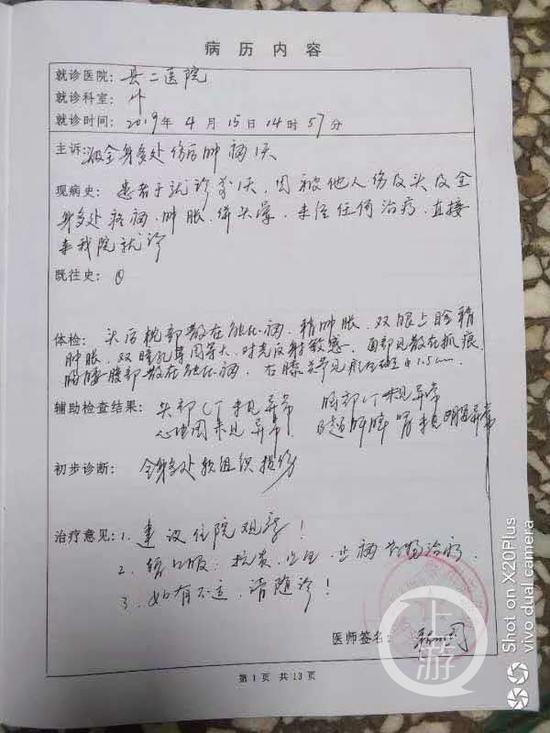 病历内容
就诊医院: 县二医院
就诊科室: 外
就诊时间: 2019年4月15日14时57分
主诉: 全身多处伤后肿痛1天
现病史: 患者于就诊前1天,因被他人伤及头及全
身多处疼痛、肿胀,伴头晕,未经任何治疗,直接
来我院就诊
既往史:
体检: 头后枕部散在触压痛,稍肿胀,双眼上睑稍
肿胀,双瞳孔等周等大,对光反射敏感,面部见散在抓痕,
胸腰部散在触压痛,右膝关节见 1.5cm
辅助检查结果: 头部CT未见异常 胸部CT未见异常
心电图未见异常 肝脾肾未见明显异常
初步诊断: 全身多处软组织损伤
治疗意见: 1、建议住院观察!
2、口服:抗炎、止痛药物治疗.
3、如有不适,请随诊!
医师签名:
第1页 共13页
上游
Shot on X20Plus
vivo dual camera